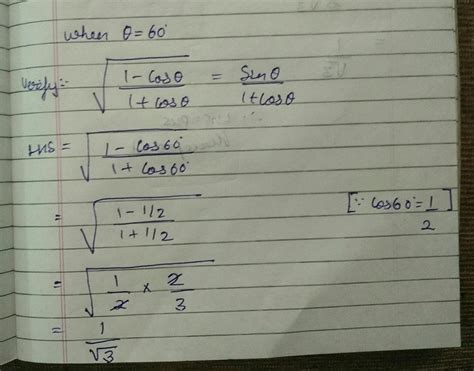 when θ = 60°
Verify:- √(1 - Cosθ / 1 + cosθ) = Sinθ / 1 + cosθ
LHS = √(1 - Cos60° / 1 + Cos60°)
= √(1 - 1/2 / 1 + 1/2) [∵ Cos60° = 1/2]
= √(1/2 × 2/3)
= 1/√3